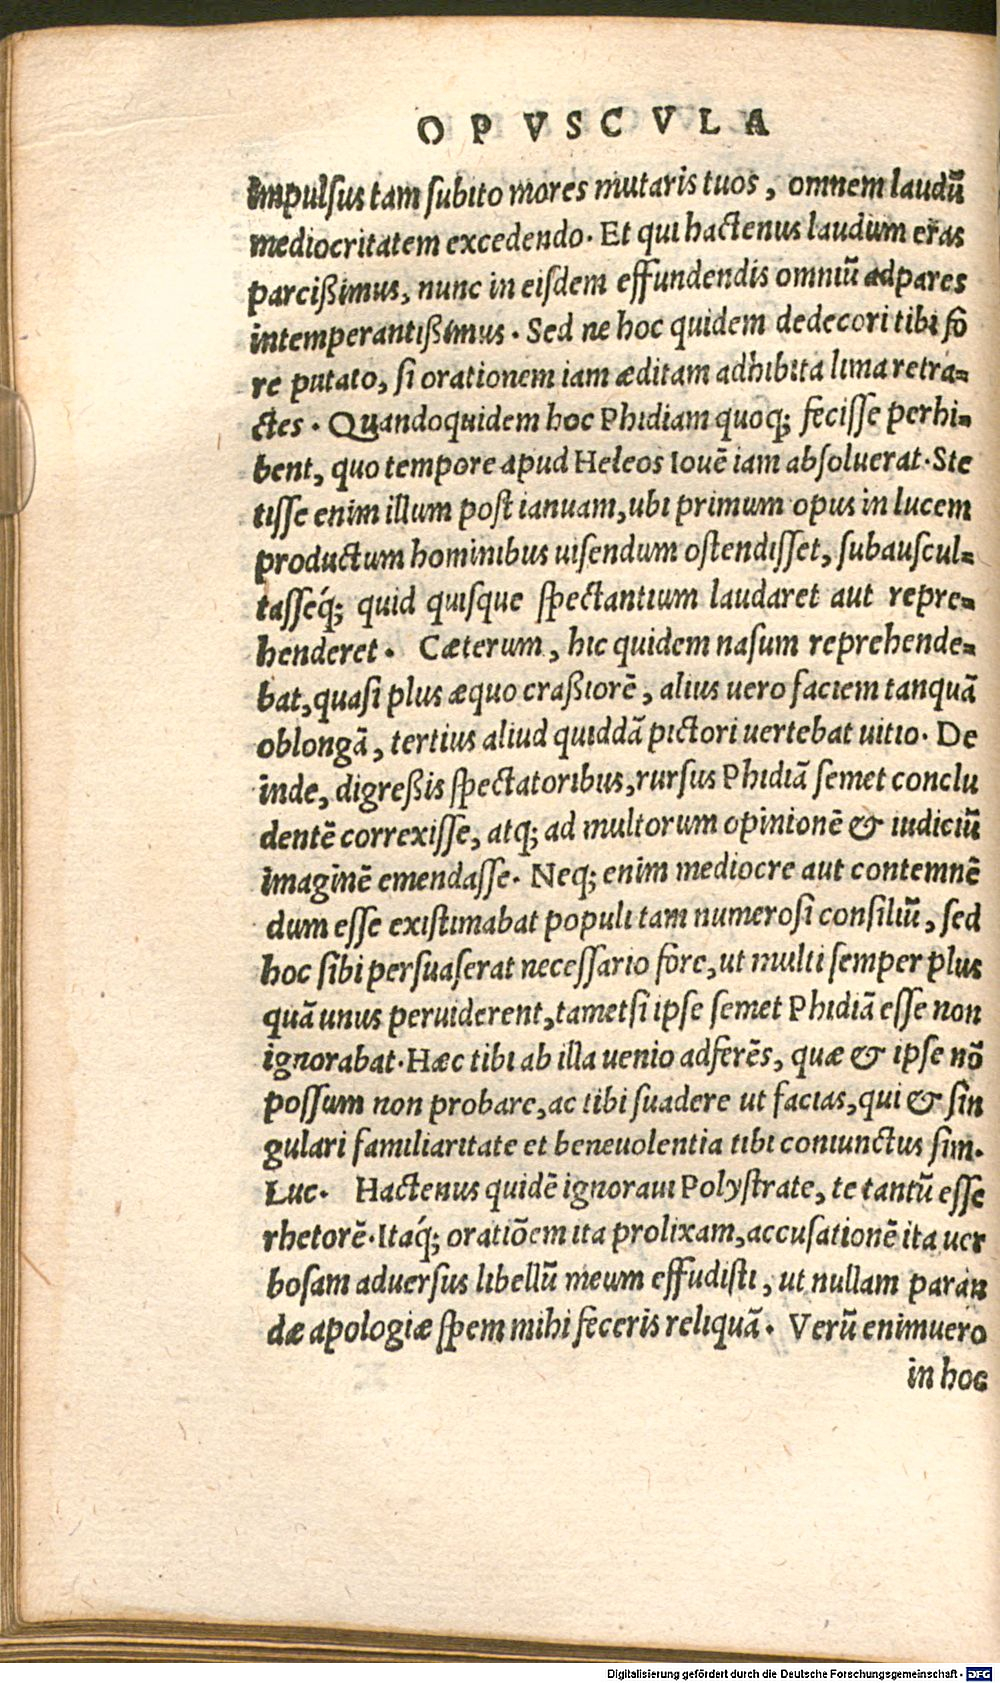 OPVSCVLA
impulsus tam subito mores mutaris tuos, omnem laudũ
mediocritatem excedendo. Et qui hactenus laudum eras
parcißimus, nunc in eisdem effundendis omniũ adpares
intemperantißimus. Sed ne hoc quidem dedecori tibi fo
re putato, si orationem iam æditam adhibita lima retra=
ctes. Quandoquidem hoc Phidiam quoq; fecisse perhi=
bent, quo tempore apud Heleos Iouẽ iam absoluerat. Ste
tisse enim illum post ianuam, ubi primum opus in lucem
productum hominibus uisendum ostendisset, subauscul=
tasseq́; quid quisque spectantium laudaret aut repre=
henderet. Cæterum, hic quidem nasum reprehende=
bat, quasi plus æquo craßiorẽ, alius uero faciem tanquã
oblongã, tertius aliud quiddã pictori uertebat uitio. De
inde, digreßis spectatoribus, rursus Phidiã semet conclu
dentẽ correxisse, atq; ad multorum opinionẽ & iudiciũ
imaginẽ emendasse. Neq; enim mediocre aut contemnẽ
dum esse existimabat populi tam numerosi consiliũ, sed
hoc sibi persuaserat necessario fore, ut multi semper plus
quã unus peruiderent, tametsi ipse semet Phidiã esse non
ignorabat. Hæc tibi ab illa uenio adferẽs, quæ & ipse nõ
possum non probare, ac tibi suadere ut facias, qui & sin
gulari familiaritate et beneuolentia tibi coniunctus sim.
Luc. Hactenus quidẽ ignoraui Polystrate, te tantũ esse
rhetorẽ. Itaq́; oratiõem ita prolixam, accusationẽ ita uer
bosam aduersus libellũ meum effudisti, ut nullam paran
dæ apologiæ spem mihi feceris reliquã. Verũ enimuero
in hoc
Digitalisierung gefördert durch die Deutsche Forschungsgemeinschaft - DFG